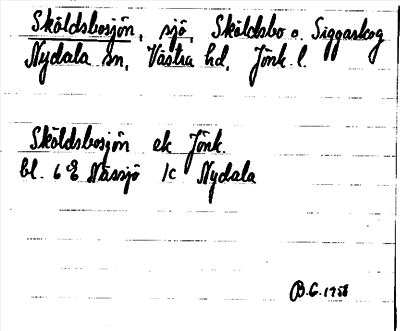 Sköldsbosjön, sjö, Sköldsbo o. Siggaskog
Nydala sn, Västra hd, Jönk. l.
Sköldsbosjön ek Jönk.
bl. 6 E Nässjö 1c Nydala
B.G. 1958